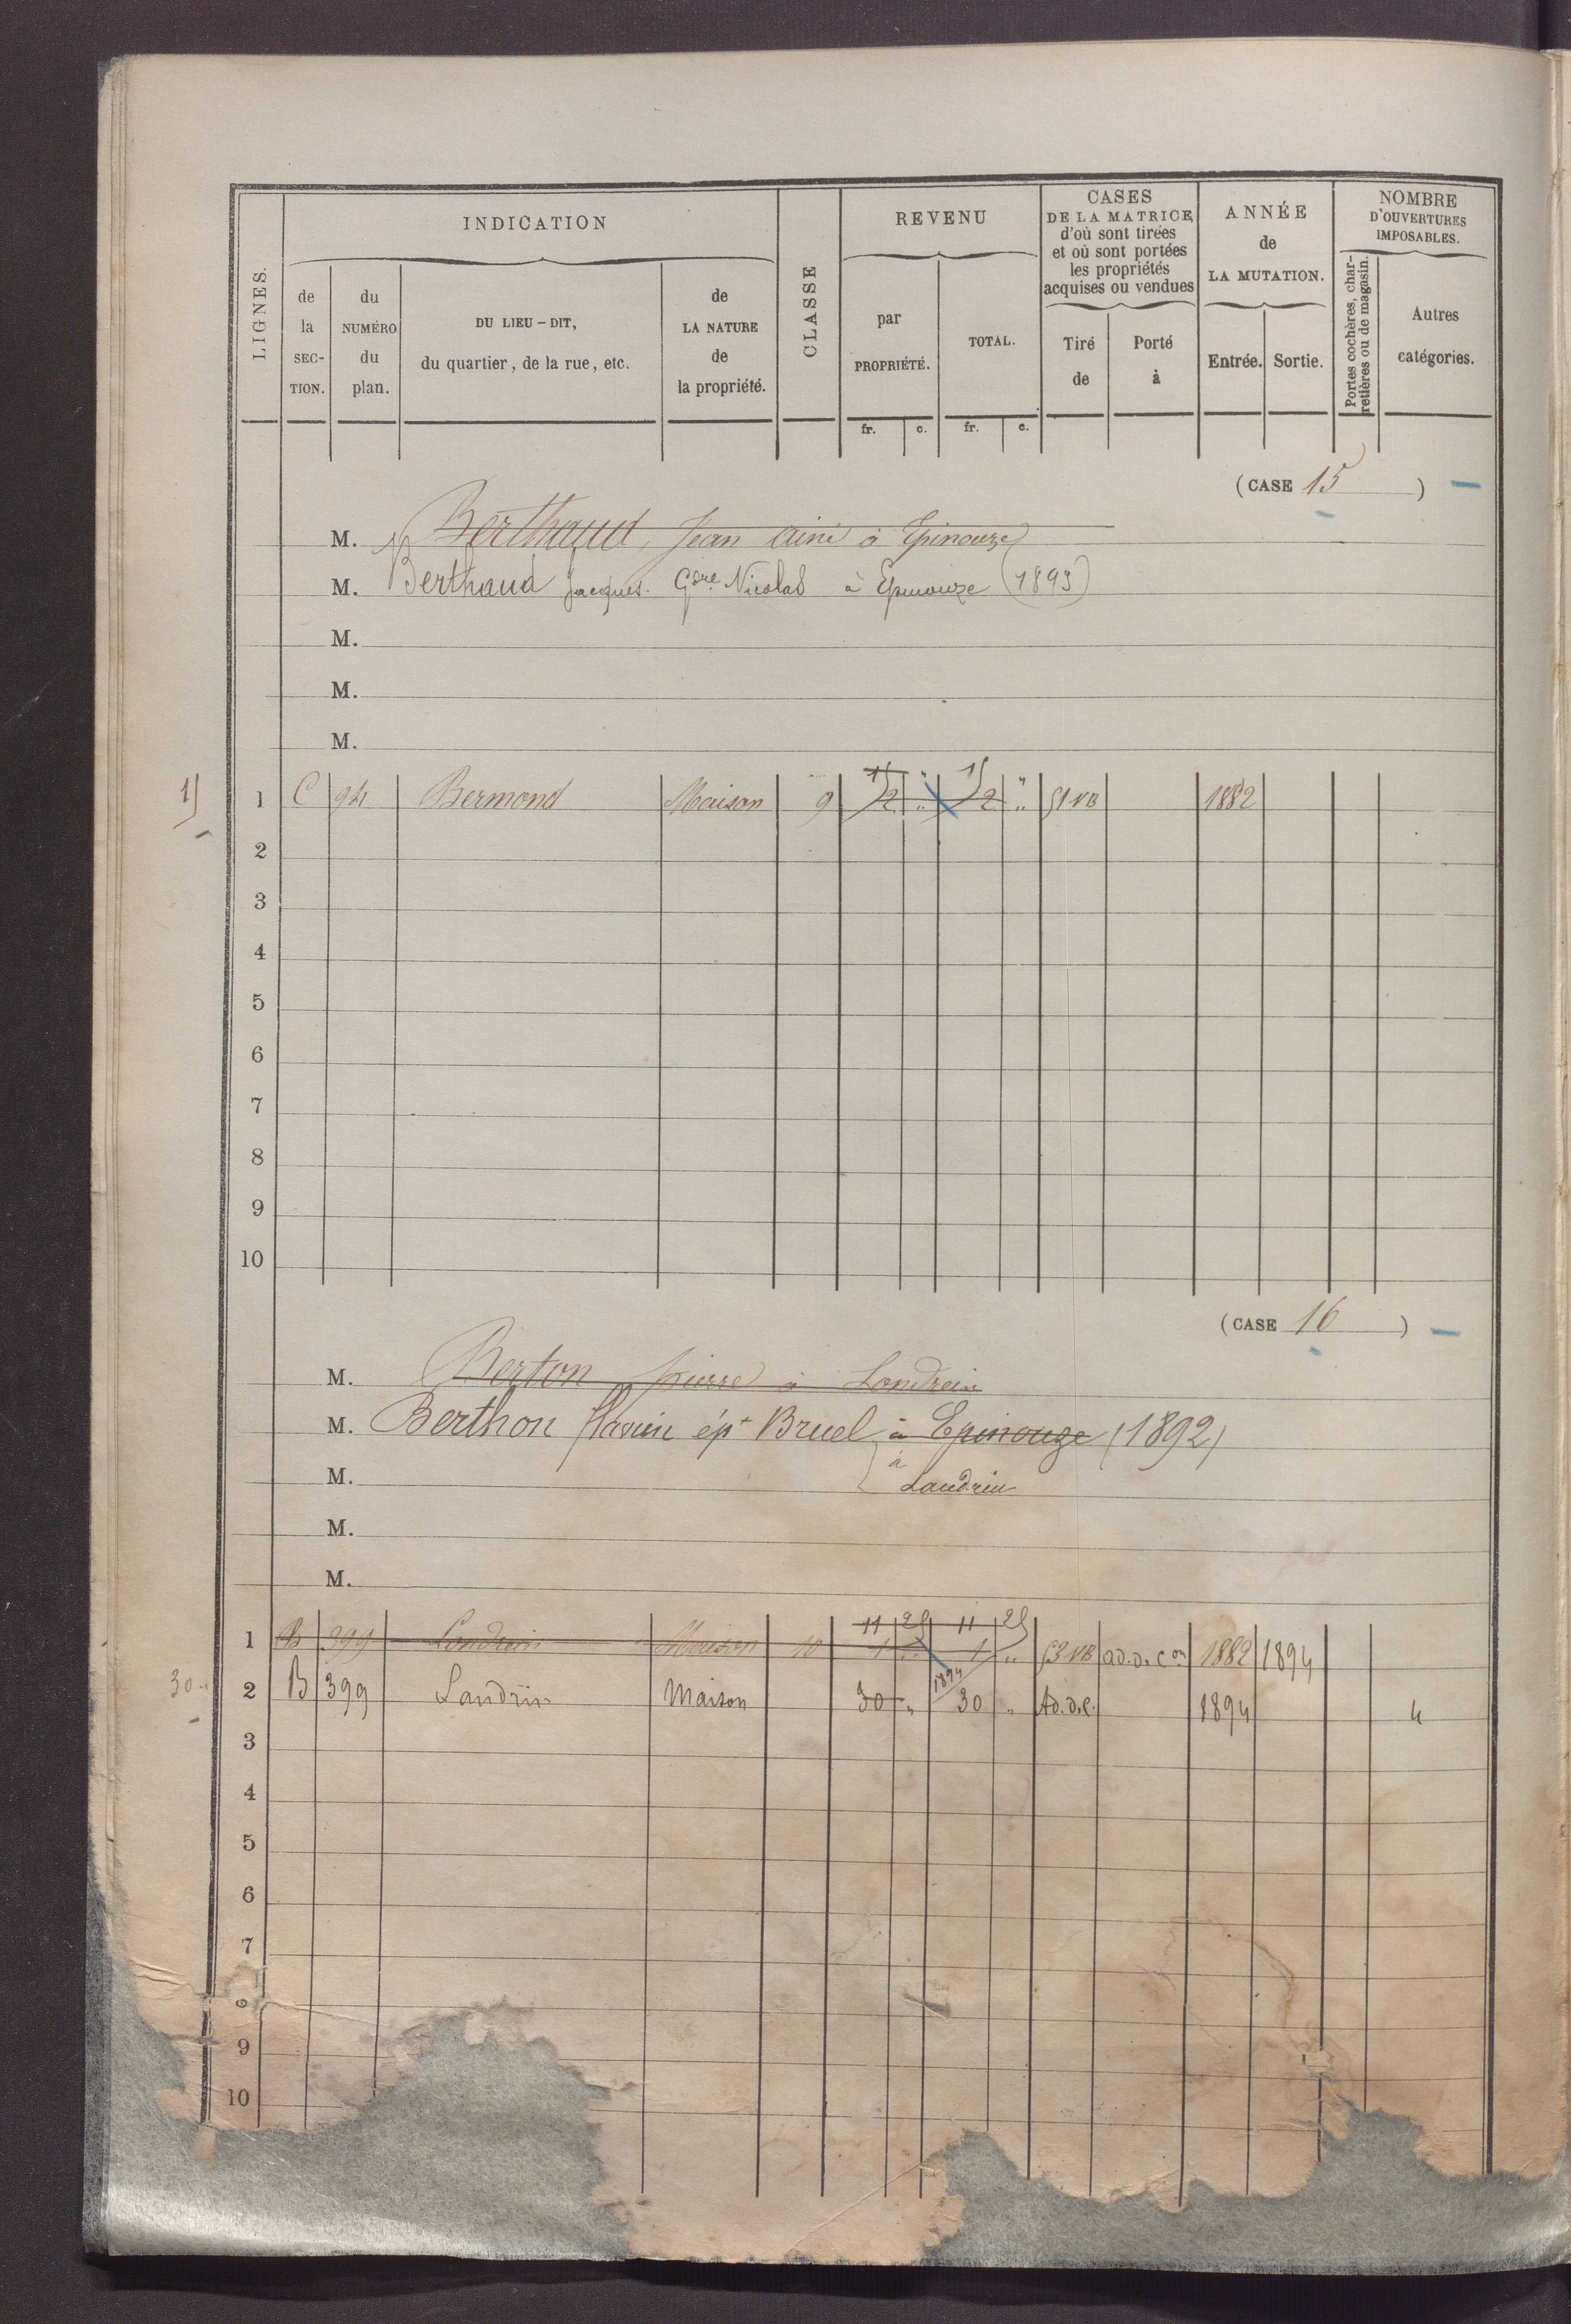 LIGNES.
INDICATION
de la SECTION.
du NUMÉRO du plan.
DU LIEU-DIT, du quartier, de la rue, etc.
de LA NATURE de la propriété.
CLASSE
REVENU
par PROPRIÉTÉ.
TOTAL.
fr. c. fr. c.
CASES DE LA MATRICE d'où sont tirées et où sont portées les propriétés acquises ou vendues
Tiré de
Porté à
ANNÉE de LA MUTATION.
Entrée. Sortie.
NOMBRE D'OUVERTURES IMPOSABLES.
Portes cochères, charretières ou de magasin.
Autres catégories.
(CASE 15)
M. Berthaud, Jean ainé à Epinouze
M. Berthaud Jacques. Gdre Nicolas à Epinouze (1893)
M.
M.
M.
1 C 94 Bermond Maison 9 2 " 2 " 51 VB 1882
2
3
4
5
6
7
8
9
10
(CASE 16)
M. Berton pierre à Londrein
M. Berthon flavie ép+ Bruel à Epinouze (1892)
M. à Landrin
M.
M.
11 25 11 25
1 B 399 Londrein Maison 10 1 " 1 " 53 VB ad. d. con 1882 1894
1894
30 " 2 B 399 Landrin Maison 30 " 30 " Ad. d. c. 1894 4
3
4
5
6
7
9
10